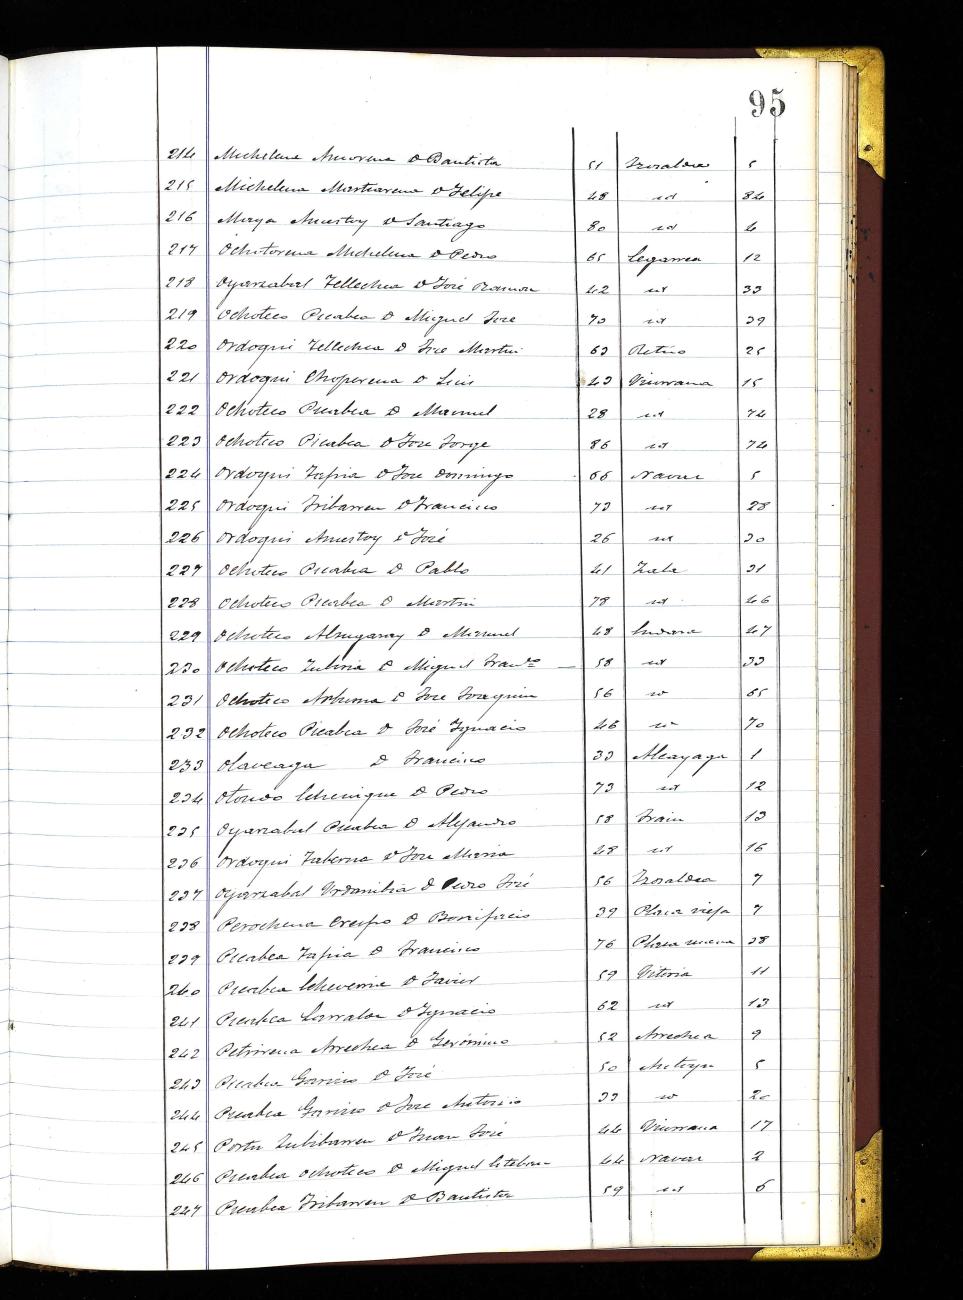 95
214 Michelena Amorena D Bautista 51 Zozaldea 5
215 Michelena Martiarena D Felipe 48 id 84
216 Maya Amestoy D Santiago 80 id 6
217 Ochotorena Michelena D Pedro 65 Legarrea 12
218 Oyarzabal Tellechea D José Ramon 42 id 33
219 Ochoteco Picabea D Miguel José 73 id 39
220 Ordoqui Tellechea D José Martin 63 25
221 Ordoqui Choperena D Luis 43 15
222 Ochoteco Picabea D Manuel 28 id 74
223 Ochoteco Picabea D José Jorge 86 id 74
224 Ordoqui Tapia D José Domingo 66 Navaz 5
225 Ordoqui Iribarren D Francisco 73 id 28
226 Ordoqui Amestoy D José 26 id 30
227 Ochoteco Picabea D Pablo 41 Zala 31
228 Ochoteco Picabea D Martin 78 id 46
229 Ochoteco Alzugaray D Manuel 48 47
230 Ochoteco Zubiria D Miguel Franco 58 id 33
231 Ochoteco D José Joaquin 56 id 65
232 Ochoteco Picabea D José Ygnacio 46 id 70
233 Olaveaga D Francisco 33 Alcayaga 1
234 Otondo Echenique D Pedro 73 id 12
235 Oyarzabal Picabea D Alejandro 58 Irain 13
236 Ordoqui Taberna D José Maria 48 id 16
237 Oyarzabal Urdanibia D Pedro José 56 Zozaldea 7
238 Perochena Crespo D Bonifacio 39 Plaza vieja 7
239 Picabea Tapia D Francisco 76 Plaza nueva 38
240 Picabea Echeverria D Javier 59 Vitoria 11
241 Picabea Larralde D Ygnacio 62 id 13
242 Petrirena Arrechea D Gerónimo 52 Arrechea 9
243 Picabea Garcino D José 50 5
244 Picabea Garcino D José Antonio 33 id 20
245 Portu Zubibarren D Juan José 44 17
246 Picabea Ochoteco D Miguel Esteban 44 Navaz 2
247 Picabea Iribarren D Bautista 59 id 6